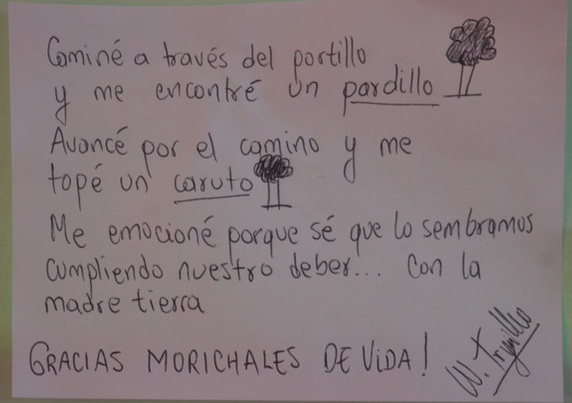 Caminé a través del portillo
y me encontré un pardillo
Avancé por el camino y me
topé un caruto
Me emocioné porque sé que lo sembramos
cumpliendo nuestro deber... con la
madre tierra
GRACIAS MORICHALES DE VIDA!
W. Trujillo